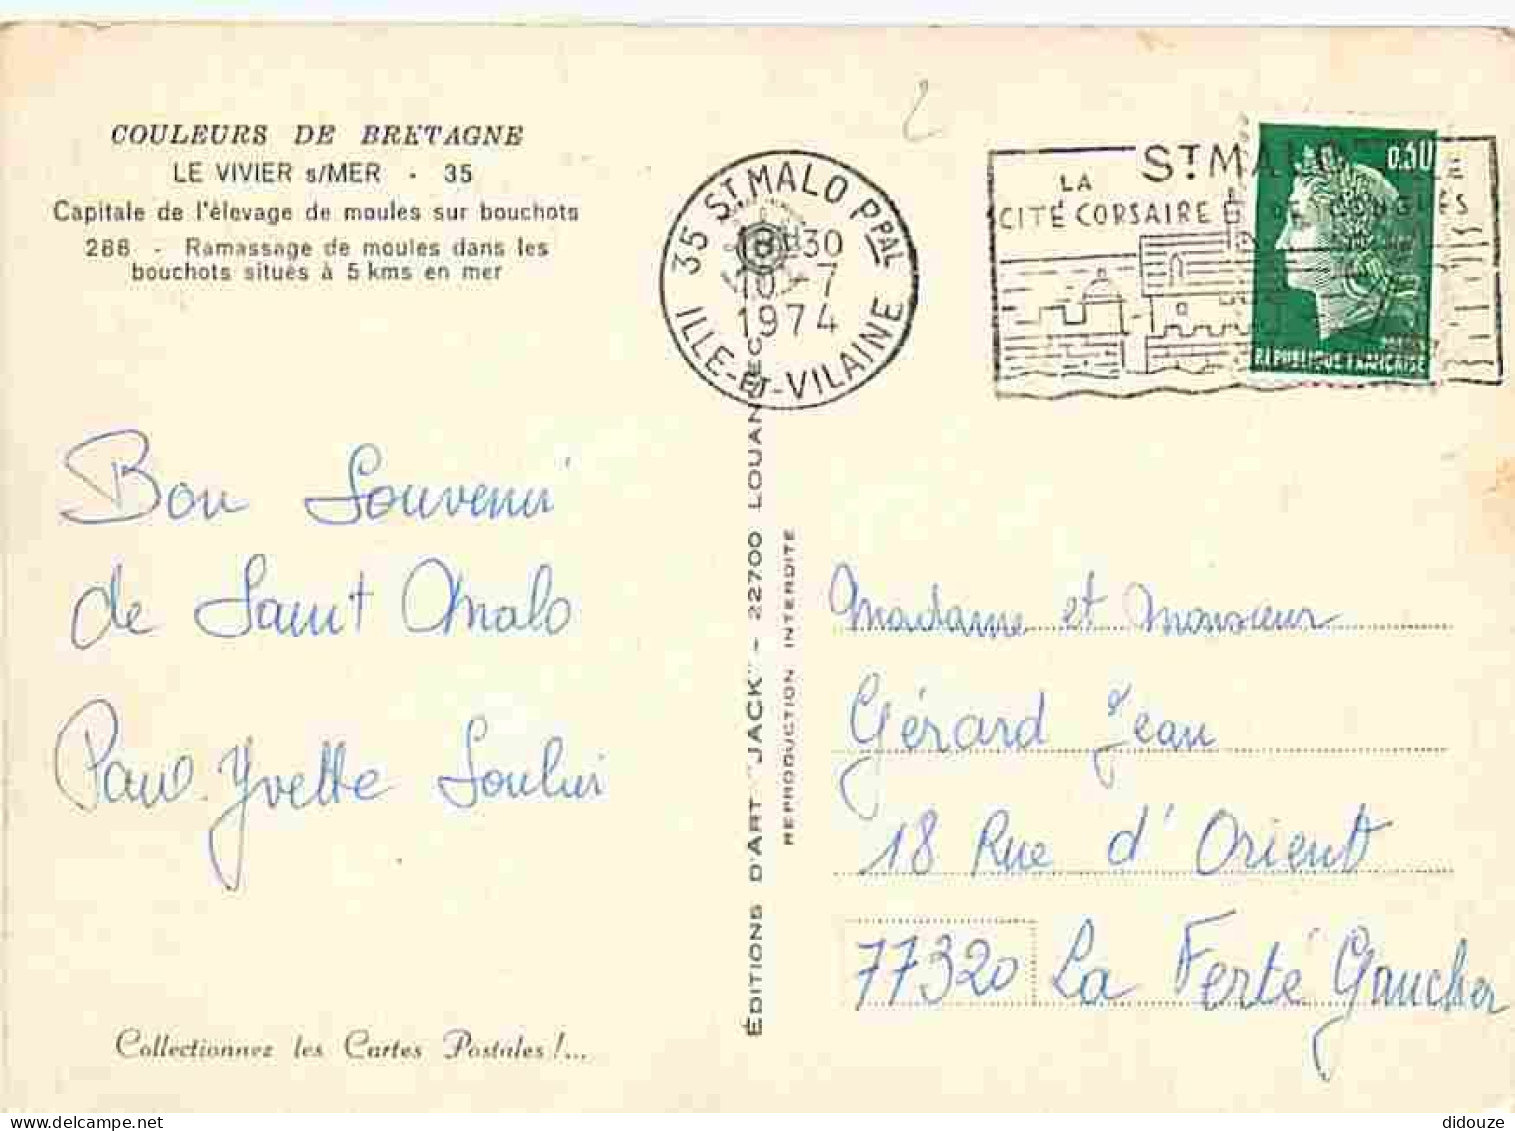 COULEURS DE BRETAGNE
LE VIVIER s/MER - 35
Capitale de l'élevage de moules sur bouchots
286 - Ramassage de moules dans les
bouchots situés à 5 kms en mer
2
35 ST MALO PPAL
18H30
10 - 7
1974
ILLE-ET-VILAINE
ST MALO
LA
CITÉ CORSAIRE DE CONGRÈS
0,30
RÉPUBLIQUE FRANÇAISE
Bon Souvenir
de Saint Malo
Paul. Yvette
ÉDITIONS D'ART "JACK" - 22700 LOUANNEC
REPRODUCTION INTERDITE
Madame et Monsieur
Gérard Jean
18 Rue d'Orient
77320 La Ferté Gaucher
Collectionnez les Cartes Postales !...
didouze